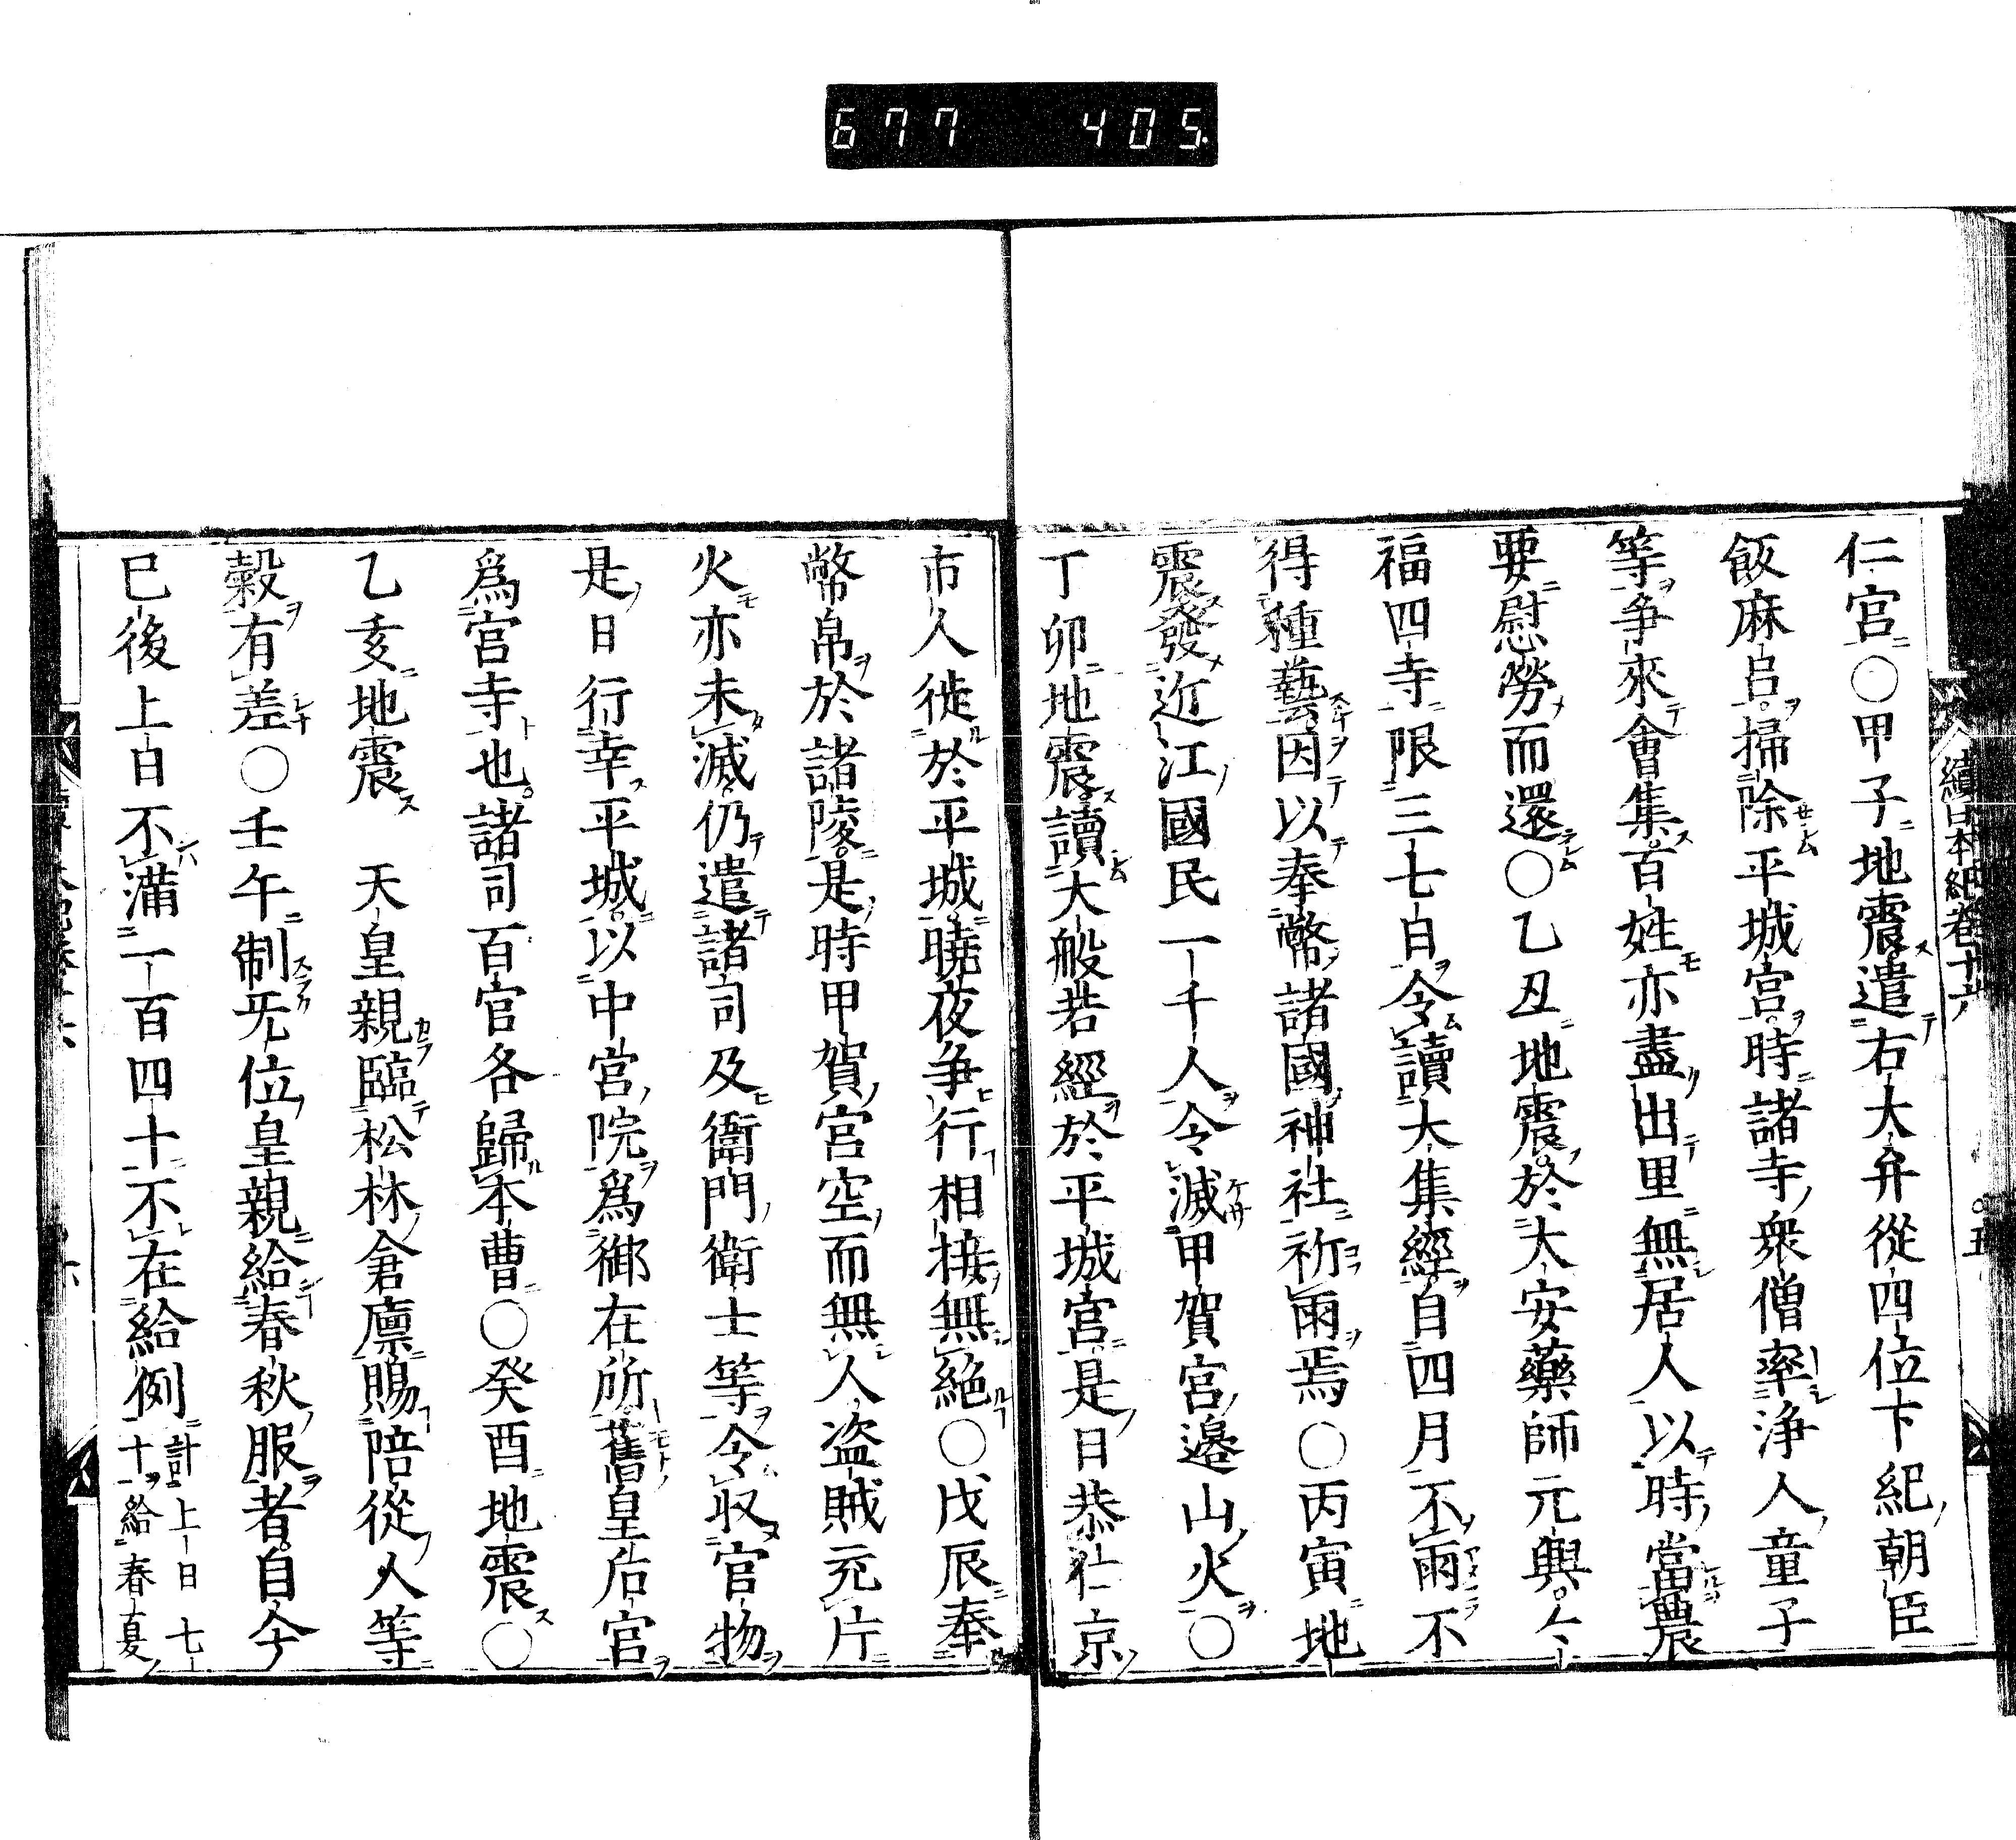 677 405.
續日本紀卷十六
五
仁宮〇甲子地震遣右大弁從四位下紀朝臣
飯麻呂掃除平城宮時諸寺衆僧率淨人童子
等爭來會集百姓亦盡出里無居人以時當農
要慰勞而還〇乙丑地震於大安藥師元興
福四寺限三七日令讀大集經自四月不雨不
得種藝因以奉幣諸國神社祈雨焉〇丙寅地
震發近江國民一千人令滅甲賀宮邊山火〇
丁卯地震讀大般若經於平城宮是日恭仁京
市人徙於平城曉夜爭行相接無絕〇戊辰奉
幣帛於諸陵是時甲賀宮空而無人盜賊充斥
火亦未滅仍遣諸司及衞門衞士等令収官物
是日行幸平城以中宮院爲御在所舊皇后宮
爲宮寺也諸司百官各歸本曹〇癸酉地震〇
乙亥地震　天皇親臨松林倉廩賜陪從人等
穀有差〇壬午制无位皇親給春秋服者自今
已後上日不滿一百四十不在給例計上日七十給春夏